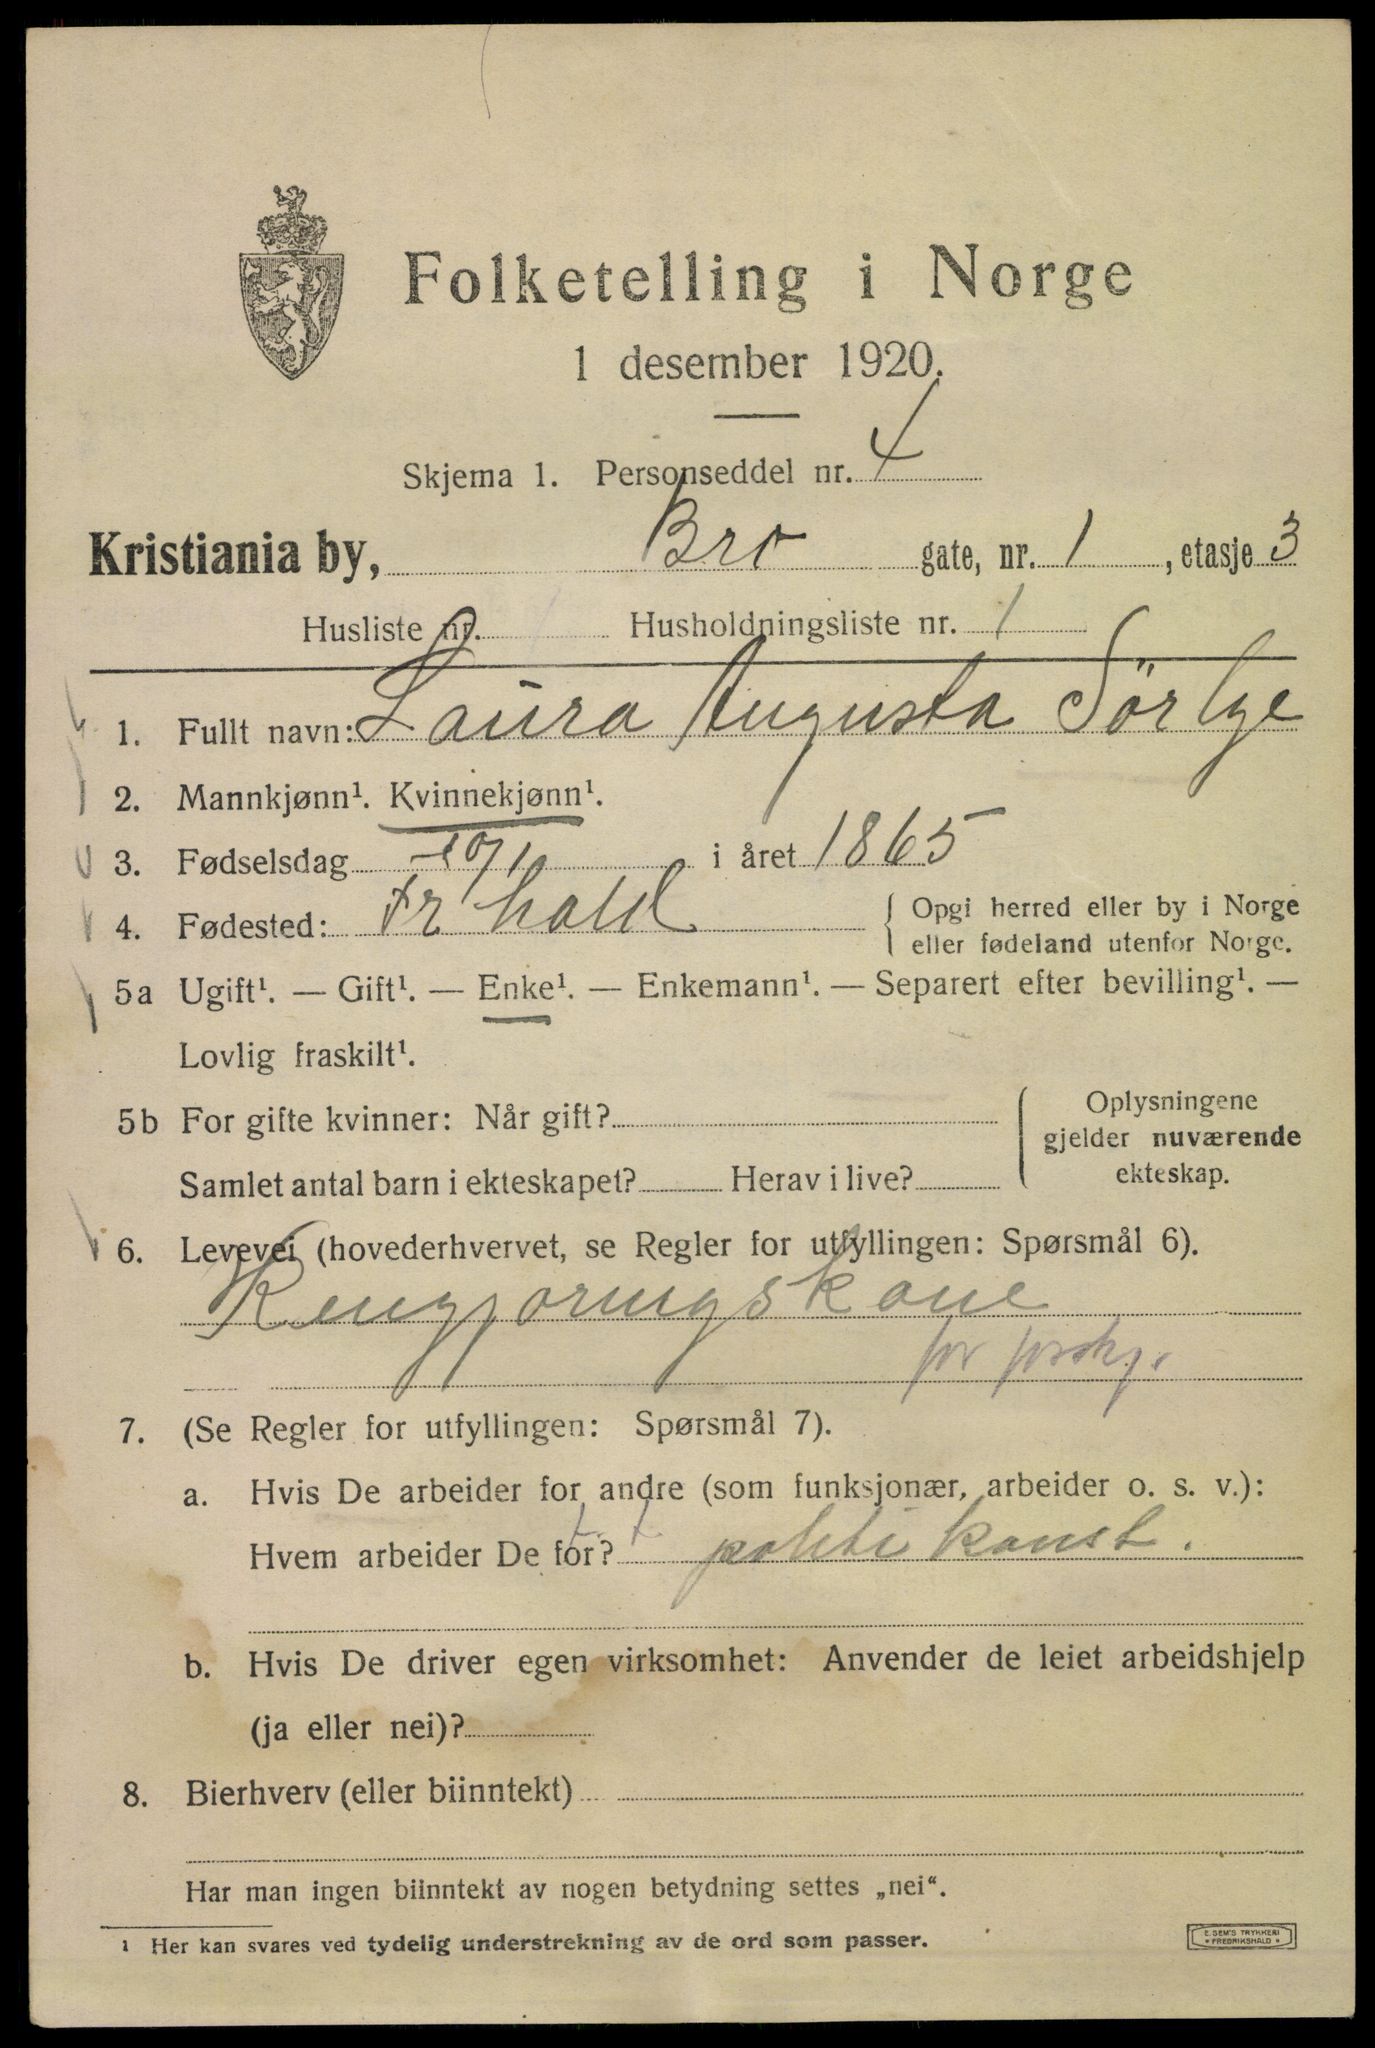 Folketelling i Norge
1 desember 1920.
Skjema 1. Personseddel nr. 4
Kristiania by, Bro gate, nr. 1, etasje 3
Husliste nr. 1 Husholdningsliste nr. 1
1. Fullt navn: Laura Augusta Sörlye
2. Mannkjønn¹. Kvinnekjønn¹.
3. Fødselsdag 10/1 i året 1865
4. Fødested: Fr hald { Opgi herred eller by i Norge
eller fødeland utenfor Norge.
5a Ugift¹. — Gift¹. — Enke¹. — Enkemann¹. — Separert efter bevilling¹. —
Lovlig fraskilt¹.
5b For gifte kvinner: Når gift?
Samlet antal barn i ekteskapet? Herav i live?
{ Oplysningene
gjelder nuværende
ekteskap.
6. Levevei (hovederhvervet, se Regler for utfyllingen: Spørsmål 6).
Rengjøringskone
for forskj.
7. (Se Regler for utfyllingen: Spørsmål 7).
a. Hvis De arbeider for andre (som funksjonær, arbeider o. s. v.):
Hvem arbeider De for? politi konst.
b. Hvis De driver egen virksomhet: Anvender de leiet arbeidshjelp
(ja eller nei)?
8. Bierhverv (eller biinntekt)
Har man ingen biinntekt av nogen betydning settes „nei“.
¹ Her kan svares ved tydelig understrekning av de ord som passer.
E. SEM'S TRYKKERI
* FREDRIKSHALD *